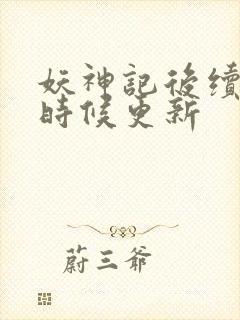 妖神記後續
時候更新
蔚三爺